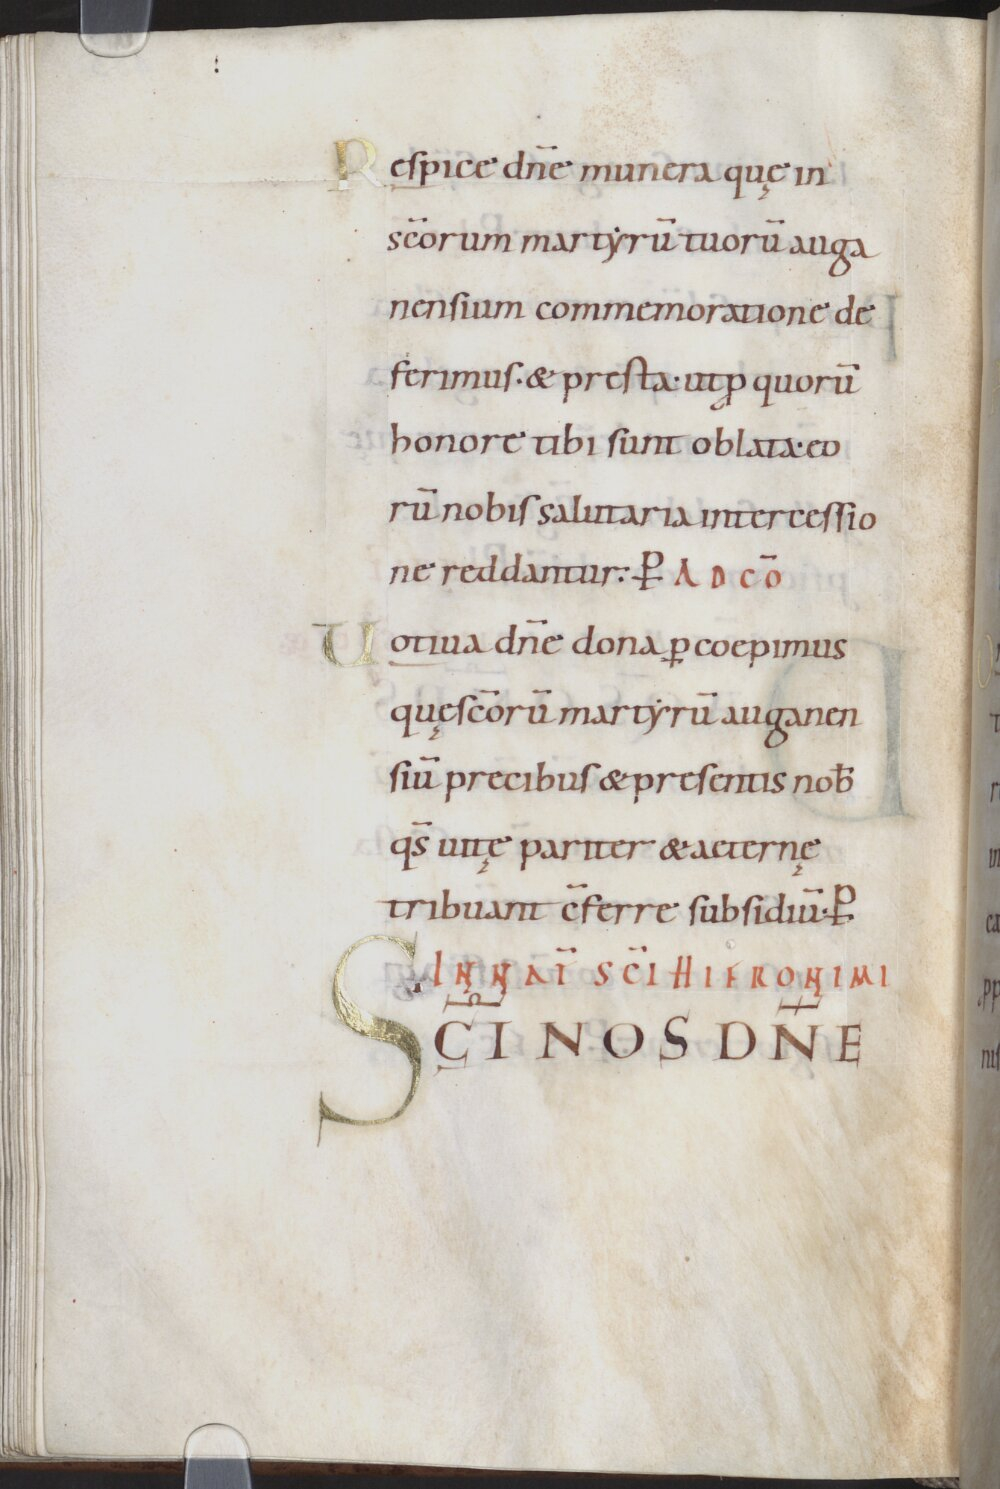 Respice dn̄e munera quę in
sc̄orum martẏrū tuorū auga
nensium commemoratione de
ferimus·& presta·utꝓ quorū
honore tibi sunt oblata·eo
rū nobis salutaria intercessio
ne reddantur:·P̄ ADCŌ
Uotiua dn̄e dona ꝑcoepimus
quęsc̄orū martẏrū auganen
siū precibus &presentis nob̄
qs̄ uitę pariter &aeternę
tribuant c̄ferre subsidiū·P̄
IN NAT̄ SC̄I HIERONIMI
SC̄I NOS DN̄E